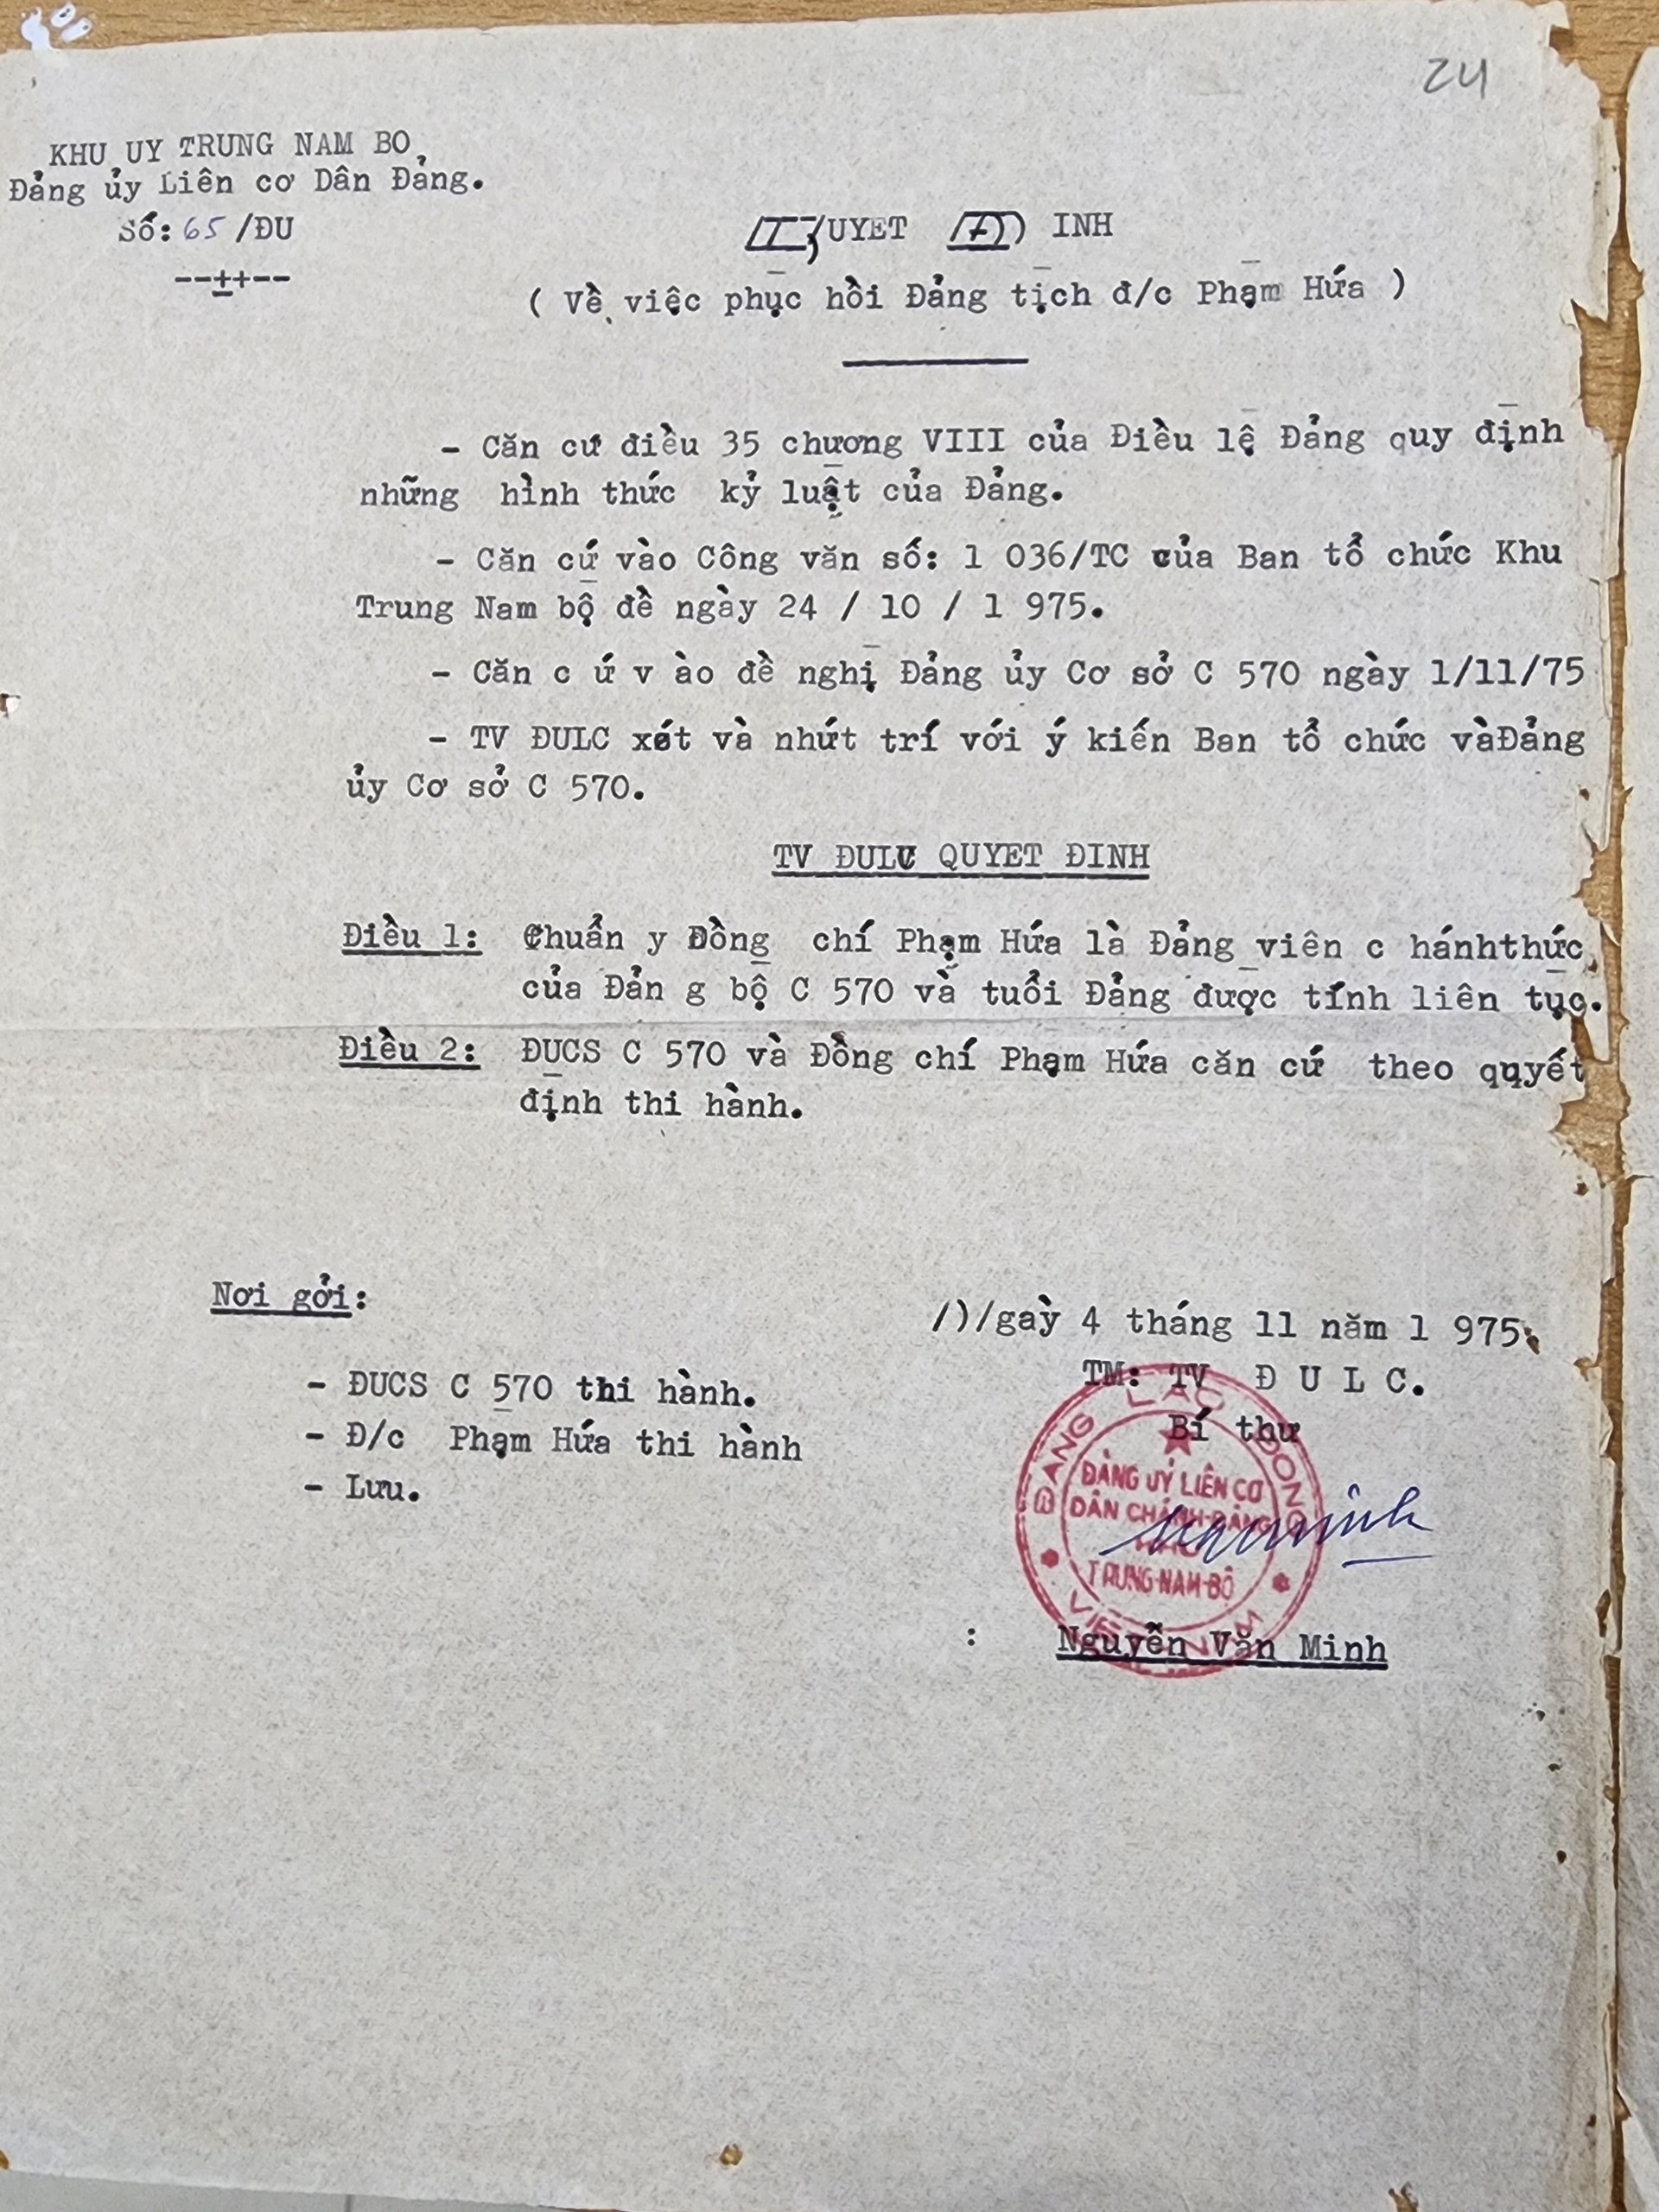 24
KHU UY TRUNG NAM BO
Đảng ủy Liên cơ Dân Đảng.
Số: 65 /ĐU
--++--
QUYET ĐINH
( Về việc phục hồi Đảng tịch đ/c Phạm Hứa )
- Căn cứ điều 35 chương VIII của Điều lệ Đảng quy định
những hình thức kỷ luật của Đảng.
- Căn cứ vào Công văn số: 1 036/TC của Ban tổ chức Khu
Trung Nam bộ đề ngày 24 / 10 / 1 975.
- Căn c ứ v ào đề nghị Đảng ủy Cơ sở C 570 ngày 1/11/75
- TV ĐULC xét và nhứt trí với ý kiến Ban tổ chức vàĐảng
ủy Cơ sở C 570.
TV ĐULC QUYET ĐINH
Điều 1: Chuẩn y Đồng chí Phạm Hứa là Đảng viên c hánhthức
của Đản g bộ C 570 và tuổi Đảng được tính liên tục.
Điều 2: ĐUCS C 570 và Đồng chí Phạm Hứa căn cứ theo quyết
định thi hành.
Nơi gởi:
- ĐUCS C 570 thi hành.
- Đ/c Phạm Hứa thi hành
- Lưu.
Ngaỳ 4 tháng 11 năm 1 975.
TM: TV Đ U L C.
Bí thư
ĐẢNG LAO ĐỘNG
ĐẢNG UỶ LIÊN CƠ
DÂN CHÁNH ĐẢNG
KHU
TRUNG-NAM-BỘ
VIỆT NAM
: Nguyễn Văn Minh